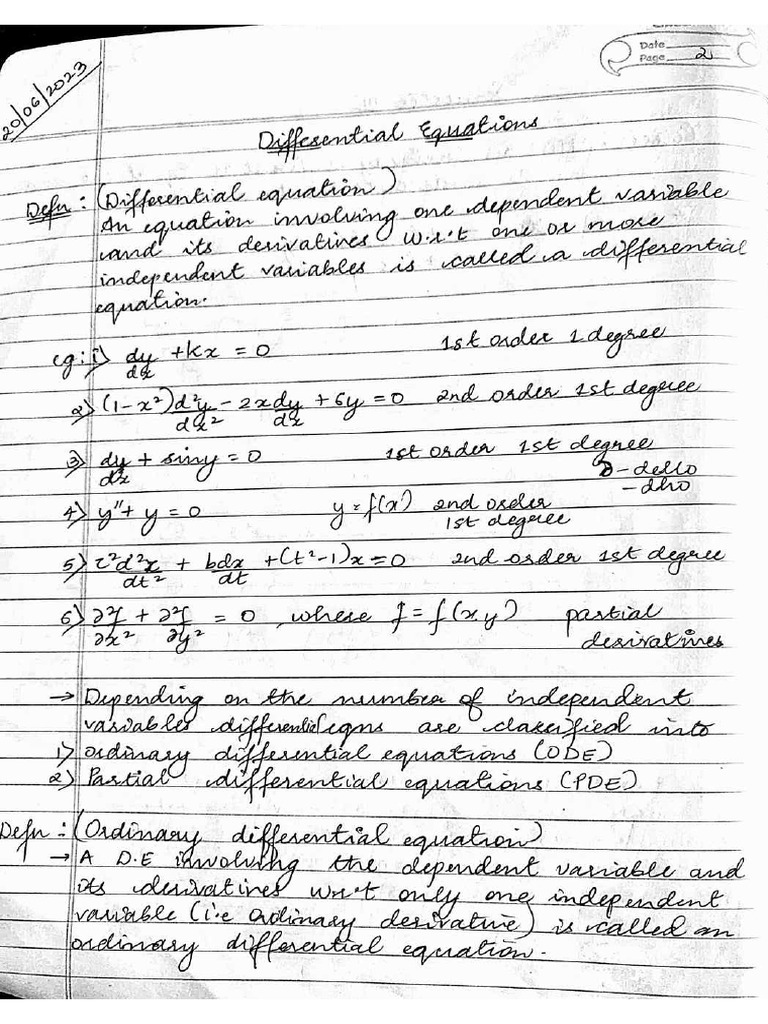 Date
Page 2
20/06/2023
Differential Equations
Defn : (Differential equation)
An equation involving one dependent variable
and its derivatives w.r.t one or more
independent variables is called a differential
equation.
eg: 1) dy/dx + kx = 0 1st order 1 degree
2) (1-x²) d²y/dx² - 2x dy/dx + 6y = 0 2nd order 1st degree
3) dy/dx + siny = 0 1st order 1st degree
∂ - dello
- dho
4) y'' + y = 0 y = f(x) 2nd order
1st degree
5) t² d²x/dt² + b dx/dt + (t²-1)x = 0 2nd order 1st degree
6) ∂²f/∂x² + ∂²f/∂y² = 0, where f = f(x,y) partial
derivatives
→ Depending on the number of independent
variables differential eqns are classified into
1) ordinary differential equations (ODE)
2) Partial differential equations (PDE)
Defn : (Ordinary differential equation)
→ A D.E involving the dependent variable and
its derivatives w.r.t only one independent
variable (i.e ordinary derivative) is called an
ordinary differential equation.